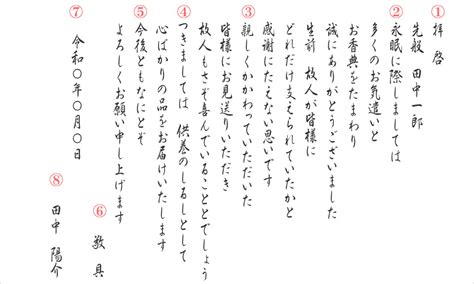 ① 拝啓
② 先般 田中一郎
永眠に際しましては
多くのお気遣いと
お香典をたまわり
誠にありがとうございました
生前 故人が皆様に
どれだけ支えられていたかと
感謝にたえない思いです
③ 親しくかかわっていただいた
皆様にお見送りいただき
故人もさぞ喜んでいることとでしょう
④ つきましては 供養のしるしとして
心ばかりの品をお届けいたします
⑤ 今後ともなにとぞ
よろしくお願い申し上げます
⑥ 敬具
⑦ 令和〇年〇月〇日
⑧ 田中 陽介